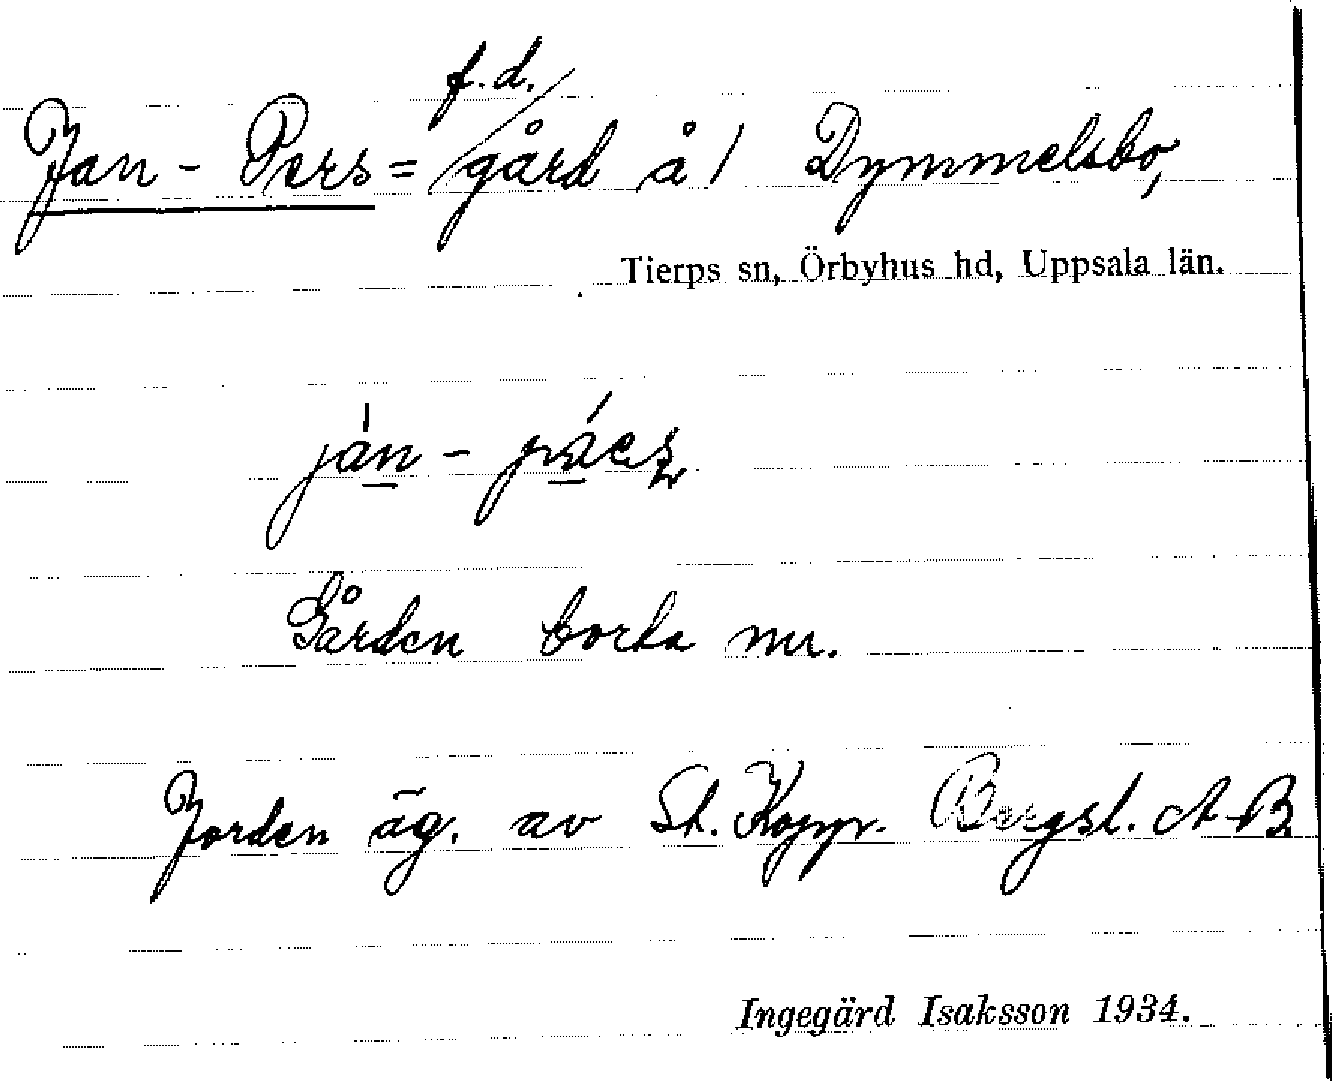 Jan-Pers= / f.d. gård å 1 Dymmelsbo,
Tierps sn, Örbyhus hd, Uppsala län.
Gården borta nu.
Jorden äg. av St. Koppr. Bergsl. A-B.
Ingegärd Isaksson 1934.